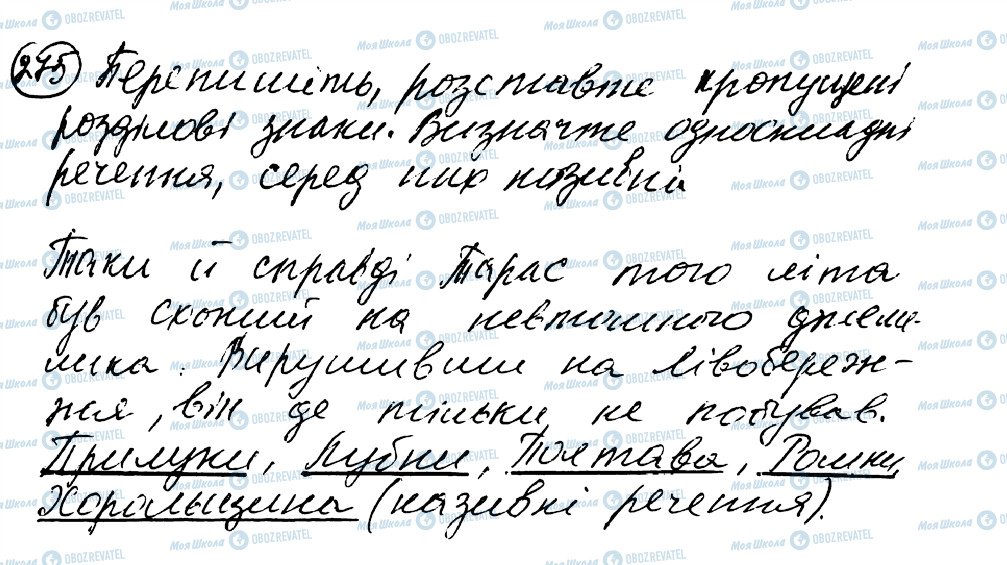 275 Перепишіть, розставте пропущені
розділові знаки. Визначте односкладні
речення, серед них називні
Таки й справді Тарас того літа
був схожий на невтомного джме-
лика. Вирушивши на Лівобереж-
жя, він де тільки не побував.
Прилуки, Лубни, Полтава, Ромни,
Хорольщина (називні речення).